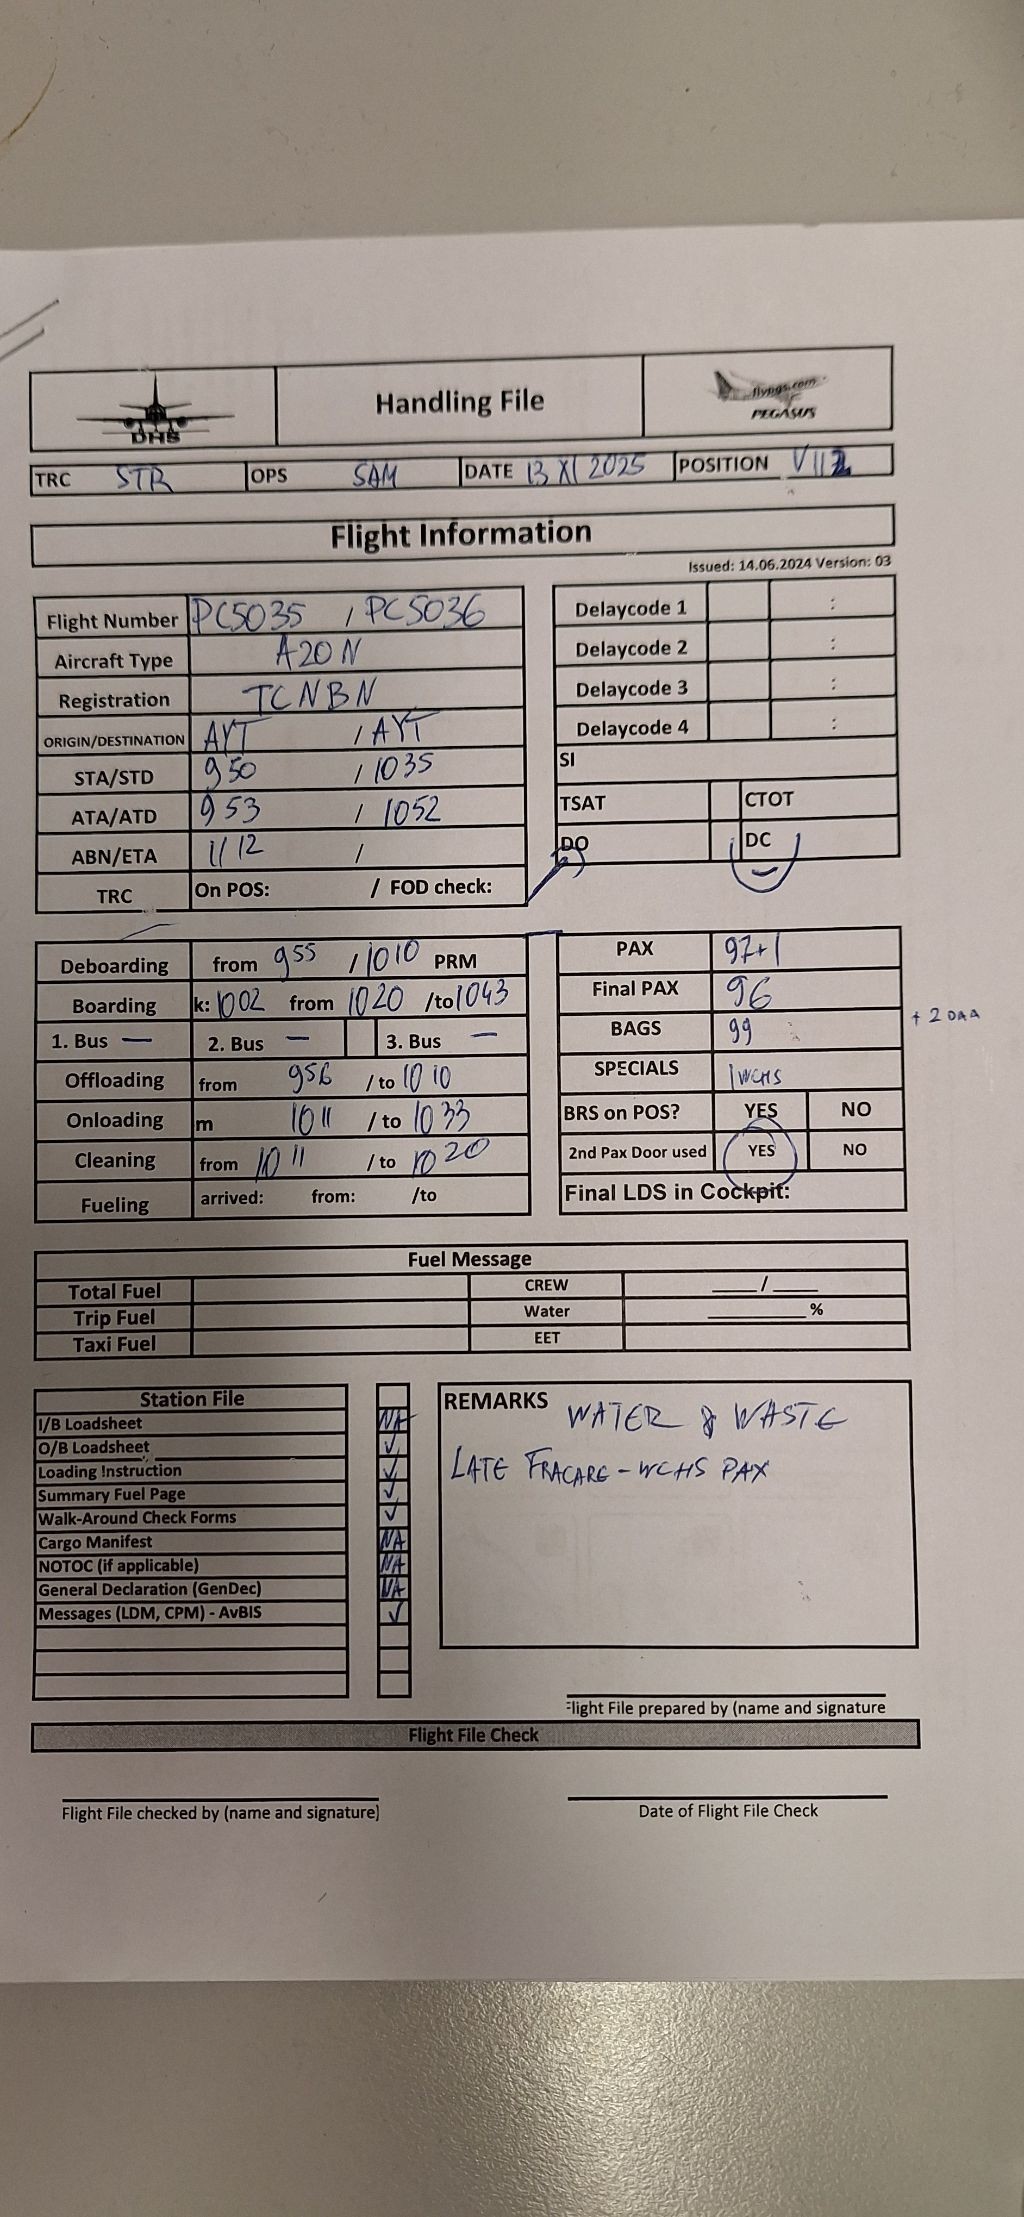 DHS
Handling File
flypgs.com
PEGASUS
TRC STR OPS SAM DATE 13 XI 2025 POSITION V112
Flight Information
Issued: 14.06.2024 Version: 03
Flight Number PC5035 / PC5036
Aircraft Type A20N
Registration TCNBN
ORIGIN/DESTINATION AYT / AYT
STA/STD 950 / 1035
ATA/ATD 953 / 1052
ABN/ETA 11/12 /
TRC On POS: / FOD check:
Delaycode 1 :
Delaycode 2 :
Delaycode 3 :
Delaycode 4 :
SI
TSAT CTOT
DO DC
Deboarding from 955 / 1010 PRM
Boarding k: 1002 from 1020 /to 1043
1. Bus — 2. Bus — 3. Bus —
Offloading from 956 / to 1010
Onloading m 1011 / to 1033
Cleaning from 1011 / to 1020
Fueling arrived: from: /to
PAX 97+1
Final PAX 96
BAGS 99 + 2 DAA
SPECIALS 1 WCHS
BRS on POS? YES NO
2nd Pax Door used YES NO
Final LDS in Cockpit:
Fuel Message
Total Fuel CREW ____/____
Trip Fuel Water ________%
Taxi Fuel EET
Station File
I/B Loadsheet NA
O/B Loadsheet ✓
Loading Instruction ✓
Summary Fuel Page ✓
Walk-Around Check Forms ✓
Cargo Manifest NA
NOTOC (if applicable) NA
General Declaration (GenDec) NA
Messages (LDM, CPM) - AvBIS ✓
REMARKS WATER & WASTE
LATE FRACARE - WCHS PAX
Flight File prepared by (name and signature
Flight File Check
Flight File checked by (name and signature)
Date of Flight File Check